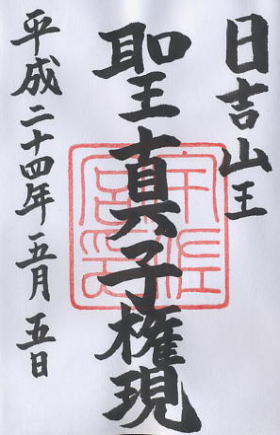 日吉山王
聖真子権現
平成二十四年五月五日
宇佐宮印